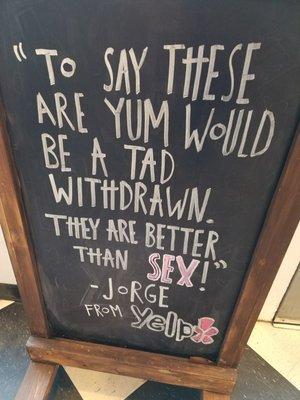 "TO SAY THESE
ARE YUM WOULD
BE A TAD
WITHDRAWN.
THEY ARE BETTER
THAN SEX!"
-JORGE
FROM yelp